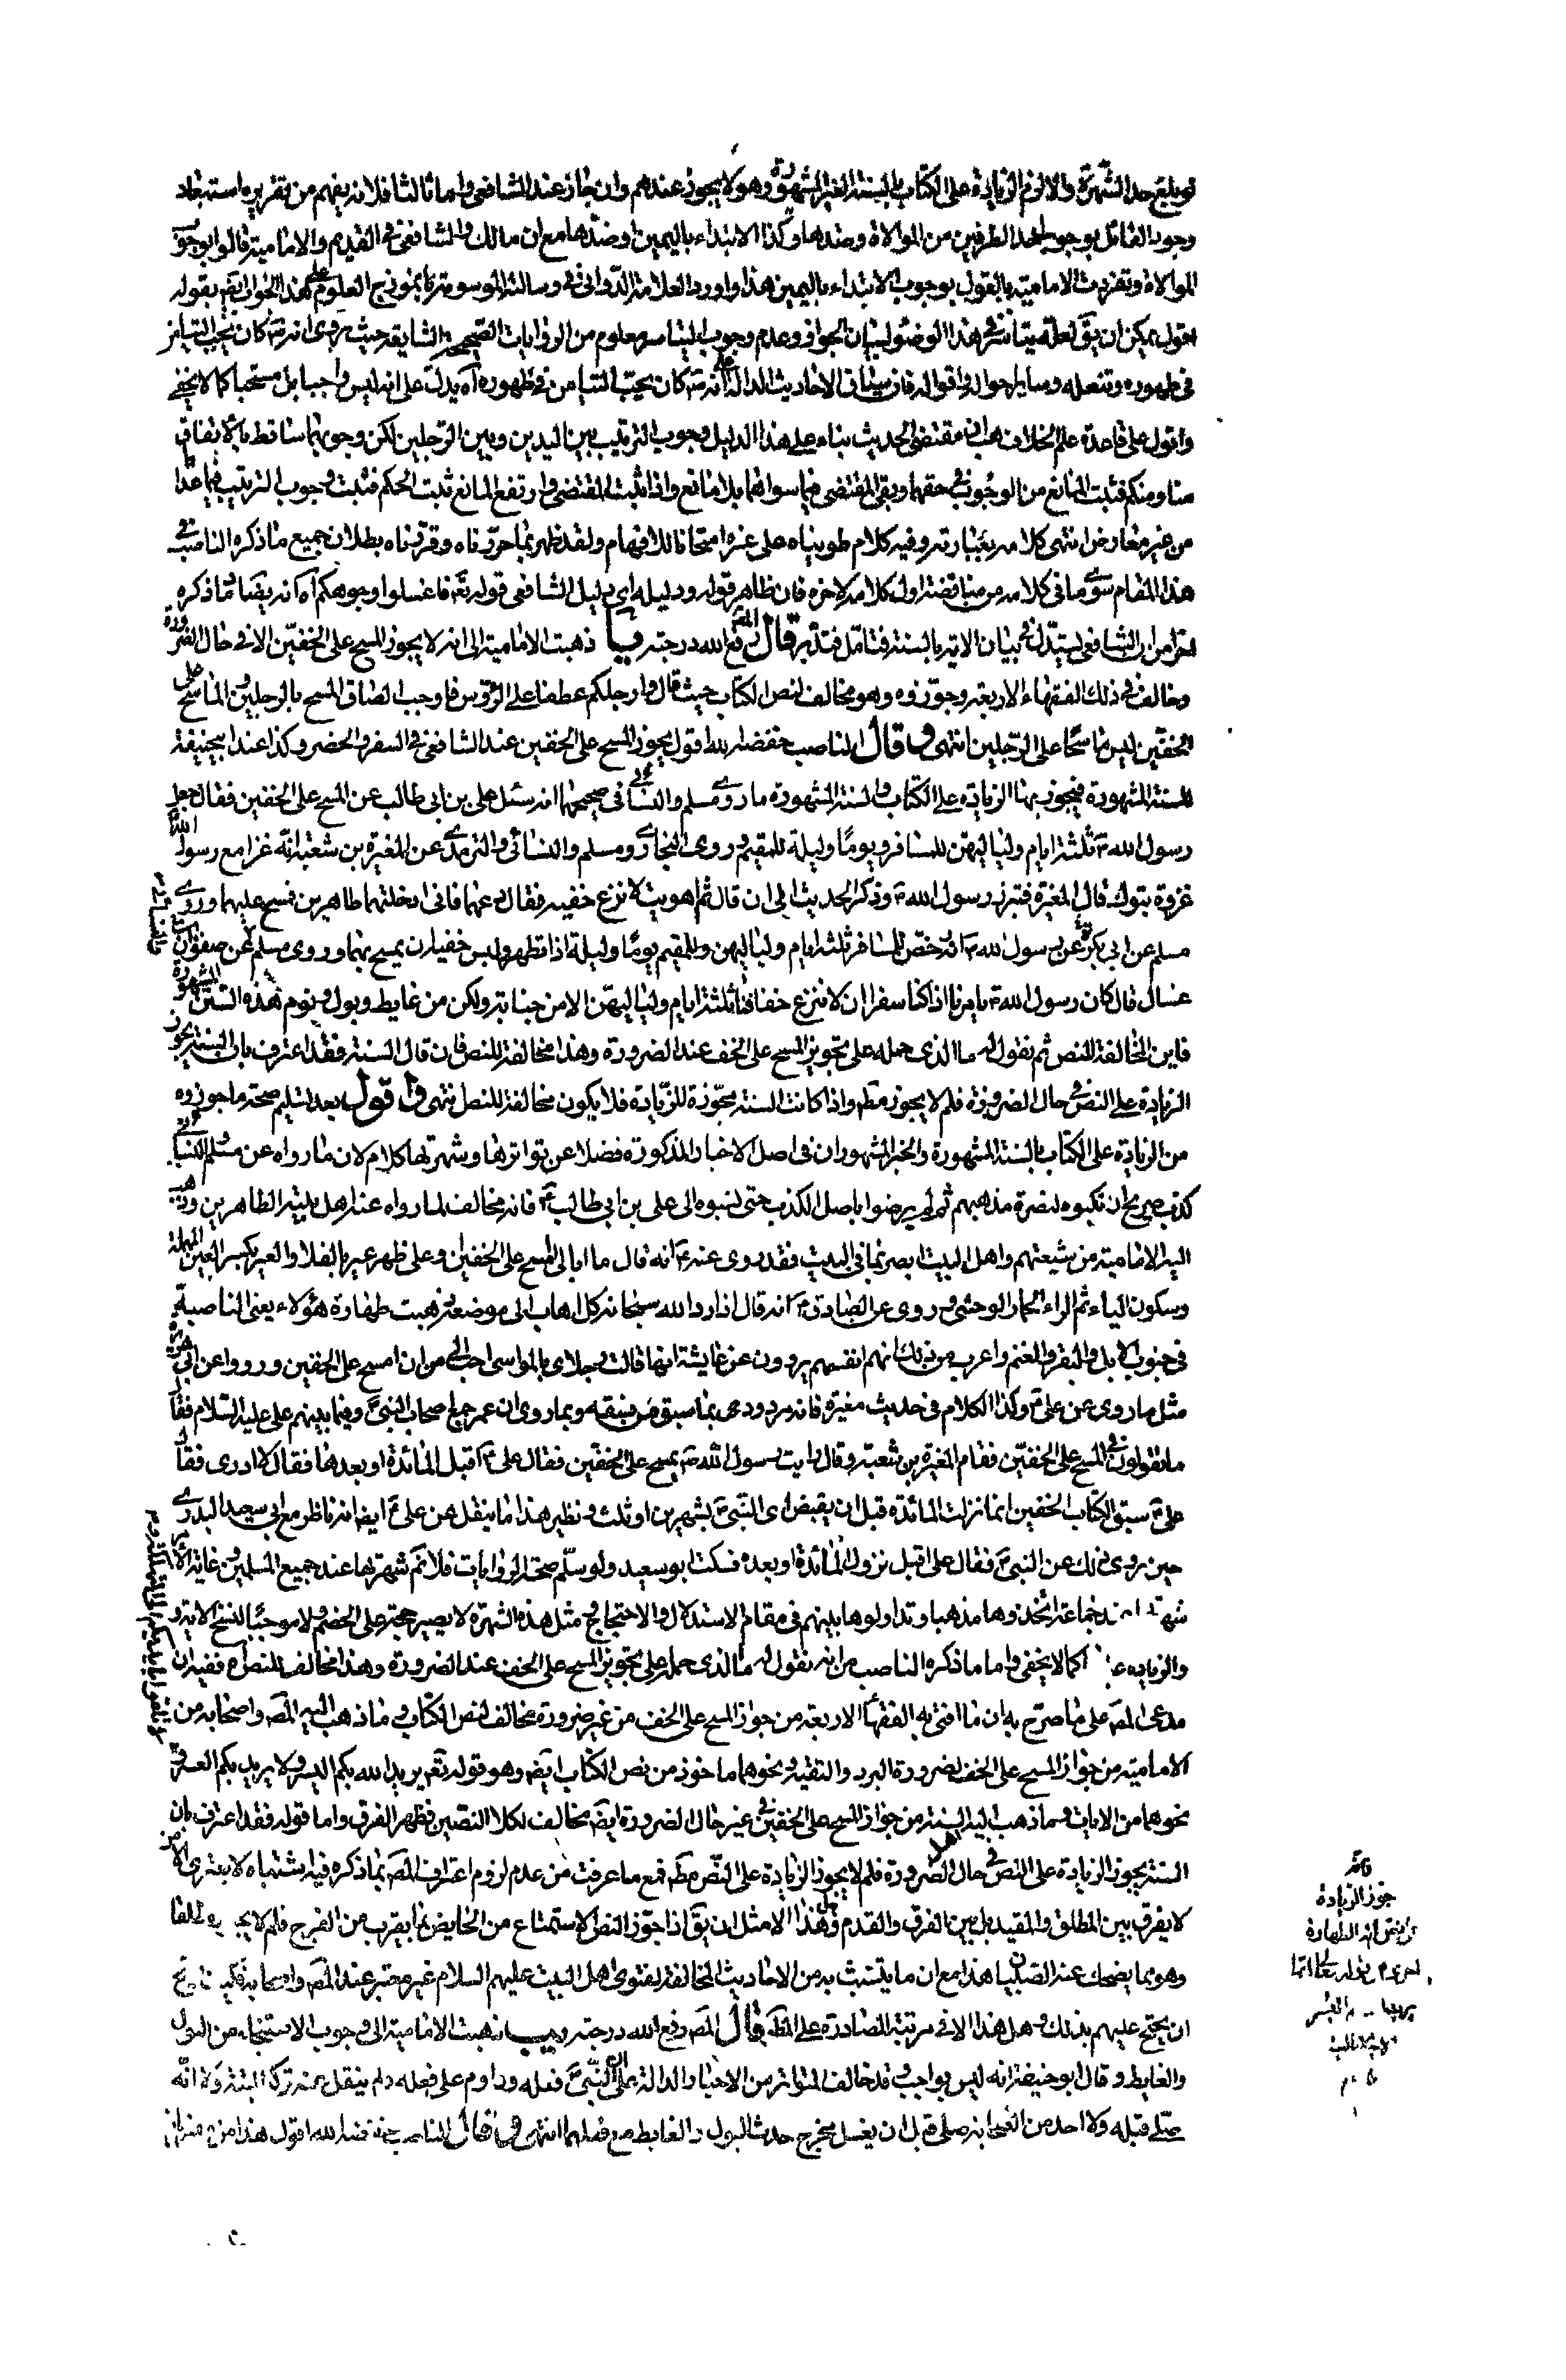 لم يبلغ حد الشهرة والا لزم الزيادة على الكتاب بالسنة الغير المشهورة وهو لا يجوز عندهم وان جاز عند الشافعي واما ثالثا فلانه يفهم من تقريره استبعاد
وجود القائل بوجوب احد الطرفين من الموالاة وضدها وكذا الابتداء باليمين وضدها مع ان مالك والشافعي في القديم والامامية قالوا بوجوب
الموالاة وتفردت الامامية بالقول بوجوب الابتداء باليمين هذا واورد العلامة الدواني في رسالته الموسومة بانموذج العلوم على هذا الجواب ايضا بقوله
اقول يمكن ان يق لعله تيامن في هذا الوضوء لبيان الجواز وعدم وجوب التياسر معلوم من الروايات الصحيحة الشايعة حيث روى انه ص كان يحب التيامن
في طهوره وتنعله وساير احواله واقواله فان سياق الاحاديث الدالة على انه ص كان يحب التيامن في طهوره آه يدل على انه ليس واجبا بل مستحبا كما لا يخفى
واقول على قاعدة علم الخلاف هب ان مقتضى الحديث بناء على هذا الدليل وجوب الترتيب بين اليدين وبين الرجلين لكن وجوبهما ساقط بالاتفاق
منا ومنكم فثبت المانع من الوجوب في حقهما وبقي المقتضى فيما سواهما بلا مانع واذا ثبت المقتضى وارتفع المانع ثبت الحكم فثبت وجوب الترتيب فيما عدا
من غير معارض انتهى كلامه بعبارته وفيه كلام طويناه على غره امتحانا للافهام ولقد ظهر بما حررناه وقررناه بطلان جميع ما ذكره الناصب في
هذا المقام سوى ما في كلامه من مناقضة اول كلامه لاخره فان ظاهر قوله ودليله اي دليل الشافعي قوله تع فاغسلوا وجوهكم آه انه يناقض ما ذكره
اخرا من ان الشافعي يستدل في بيان الاية بالسنة فتأمل فتدبر قال المص رفع الله درجته يب ذهبت الامامية الى انه لا يجوز المسح على الخفين الا في حال الضرورة
وخالف في ذلك الفقهاء الاربعة وجوزوه وهو مخالف لنص الكتاب حيث قال وارجلكم عطفا على الرؤس فاوجب الصاق المسح بالرجلين والماسح على
الخفين ليس ماسحا على الرجلين انتهى وقال الناصب خفضه الله اقول يجوز المسح على الخفين عند الشافعي في السفر والحضر وكذا عند ابيحنيفة
للسنة المشهورة فيجوز بها الزيادة على الكتاب والسنة المشهورة ما روى مسلم والنسائي في صحيحهما انه سئل علي بن ابي طالب عن المسح على الخفين فقال جعل
رسول الله ص ثلثة ايام ولياليهن للمسافر ويوما وليلة للمقيم وروى البخاري ومسلم والنسائي والترمذي عن المغيرة بن شعبة انه غزا مع رسول الله
غزوة تبوك قال المغيرة فتبرز رسول الله ص وذكر الحديث الى ان قال ثم اهويت لانزع خفيه فقال دعهما فاني ادخلتهما طاهرين فمسح عليهما وروى
مسلم عن ابي بكرة عن رسول الله ص انه رخص للمسافر ثلثة ايام ولياليهن وللمقيم يوما وليلة اذا تطهر ولبس خفيه ان يمسح بهما وروى مسلم عن صفوان بن
عسال قال كان رسول الله ص يامرنا اذا كنا سفرا ان لا ننزع خفافنا ثلثة ايام ولياليهن الا من جنابة ولكن من غايط وبول ونوم هذه السنن المشهورة
فاين المخالفة للنص ثم نقول له ما الذي حمله على تجويز المسح على الخف عند الضرورة وهذا مخالفة للنص فان قال السنة فقد اعترف بان السنة يجوز
الزيادة على النص في حال الضرورة فلم لا يجوز مط واذا كانت السنة مجوزة للزيادة فلا يكون مخالفة للنص انتهى واقول بعد تسليم صحة ما جوزوه
من الزيادة على الكتاب بالسنة المشهورة والخبر المشهور ان في اصل الاخبار المذكورة فضلا عن تواترها وشهرتها كلام لان ما رواه عن مسلم والنسائي
كذب صريح ارتكبوه لنصرة مذهبهم ثم لم يرضوا باصل الكذب حتى نسبوه الى علي بن ابي طالب ع فانه مخالف لما رواه عنه اهل بيته الطاهرين وذهب
اليه الامامية من شيعتهم واهل البيت ابصر بما في البيت فقد روى عنه ع انه قال ما ابالي المسح على الخفين وعلى ظهر عير بالفلا والعير بكسر العين المهملة
وسكون الياء ثم الراء الحمار الوحشي وروى عن الصادق ع انه قال اذا رد الله سبحانه كل اهاب الى موضعه ذهبت طهارة هؤلاء يعني الناصبية
في جنوب الابل والبقر والغنم واعرب من ذلك انهم انفسهم يروون عن عايشة انها قالت رجلاي بالمواسي احب الي من ان امسح على الخفين ورووا عن ابي هريرة
مثل ما روى عن علي ع وكذا الكلام في حديث مغيرة فانه مردود بما سبق من فسقه وبما روى ان عمر جمع اصحاب النبي ص وفيما بينهم علي عليه السلام فقال
ما تقولون في المسح على الخفين فقام المغيرة بن شعبة وقال رايت رسول الله ص يمسح على الخفين فقال علي ع اقبل المائدة او بعدها فقال لا ادري فقال
علي ع سبق الكتاب الخفين انما نزلت المائدة قبل ان يقبض اي النبي ص بشهرين او ثلث ونظير هذا ما ينقل عن علي ع ايضا انه ناظر مع ابي سعيد البدري
حين روى ذلك عن النبي ص فقال علي اقبل نزول المائدة او بعده فسكت ابو سعيد ولو سلم صحة الروايات فلا نم شهرتها عند جميع المسلمين وغاية الامر
شهرتها عند جماعة اتخذوها مذهبا وتداولوها بينهم في مقام الاستدلال والاحتجاج ومثل هذه الشهرة لا يصير حجة على الخصم ولا موجبا لنسخ الاية و
والزيادة كما لا يخفى واما ما ذكره الناصب من انه نقول له ما الذي حمله على تجويز المسح على الخف عند الضرورة وهذا مخالف للنص آه ففيه ان
مدعى المص على ما صرح به ان ما افتى به الفقهاء الاربعة من جواز المسح على الخف من غير ضرورة مخالف لنص الكتاب وما ذهب اليه المص واصحابه من
الامامية من جواز المسح على الخف لضرورة البرد والتقية ونحوهما ماخوذ من نص الكتاب ايض وهو قوله تع يريد الله بكم اليسر ولا يريد بكم العسر و
نحوهما من الايات وما ذهب اليه السنة من جواز المسح على الخفين في غير حال الضرورة ايض مخالف لكلا النصين فظهر الفرق واما قوله فقد اعترف بان
السنة يجوز الزيادة على النص في حال الضرورة فلم لا يجوز الزيادة على النص مط فمع ما عرفت من عدم لزوم اعتراف المص بما ذكره فيه اشتباه لا يعتري الا من
لا يفرق بين المطلق والمقيد بل بين الفرق والقدم وهل هذا الا مثل ان يق اذا جوز النص الاستمتاع من الحايض بما يقرب من الفرج فلم لا يجوز مطلقا
وهو مما يضحك عنه الصبيان هذا مع ان ما يتشبث به من الاحاديث المخالفة لفتوى اهل البيت عليهم السلام غير معتبر عند المص واصحابه فكيف
ان يحتج عليهم بذلك وهل هذا الا في مرتبة المصادرة على المط قال المص رفع الله درجته يب ذهبت الامامية الى وجوب الاستنجاء من البول
والغايط وقال ابو حنيفة انه ليس بواجب وقد خالف المتواتر من الاخبار الدالة على ان النبي ص فعله وداوم على فعله ولم ينقل عنه تركه البتة ولا انه
صلى قبله ولا احد من الصحابة صلى قبل ان يغسل مخرج حدث البول والغايط مع فعلهما انتهى وقال الناصب خفضه الله اقول هذا من
جوز الزيادة